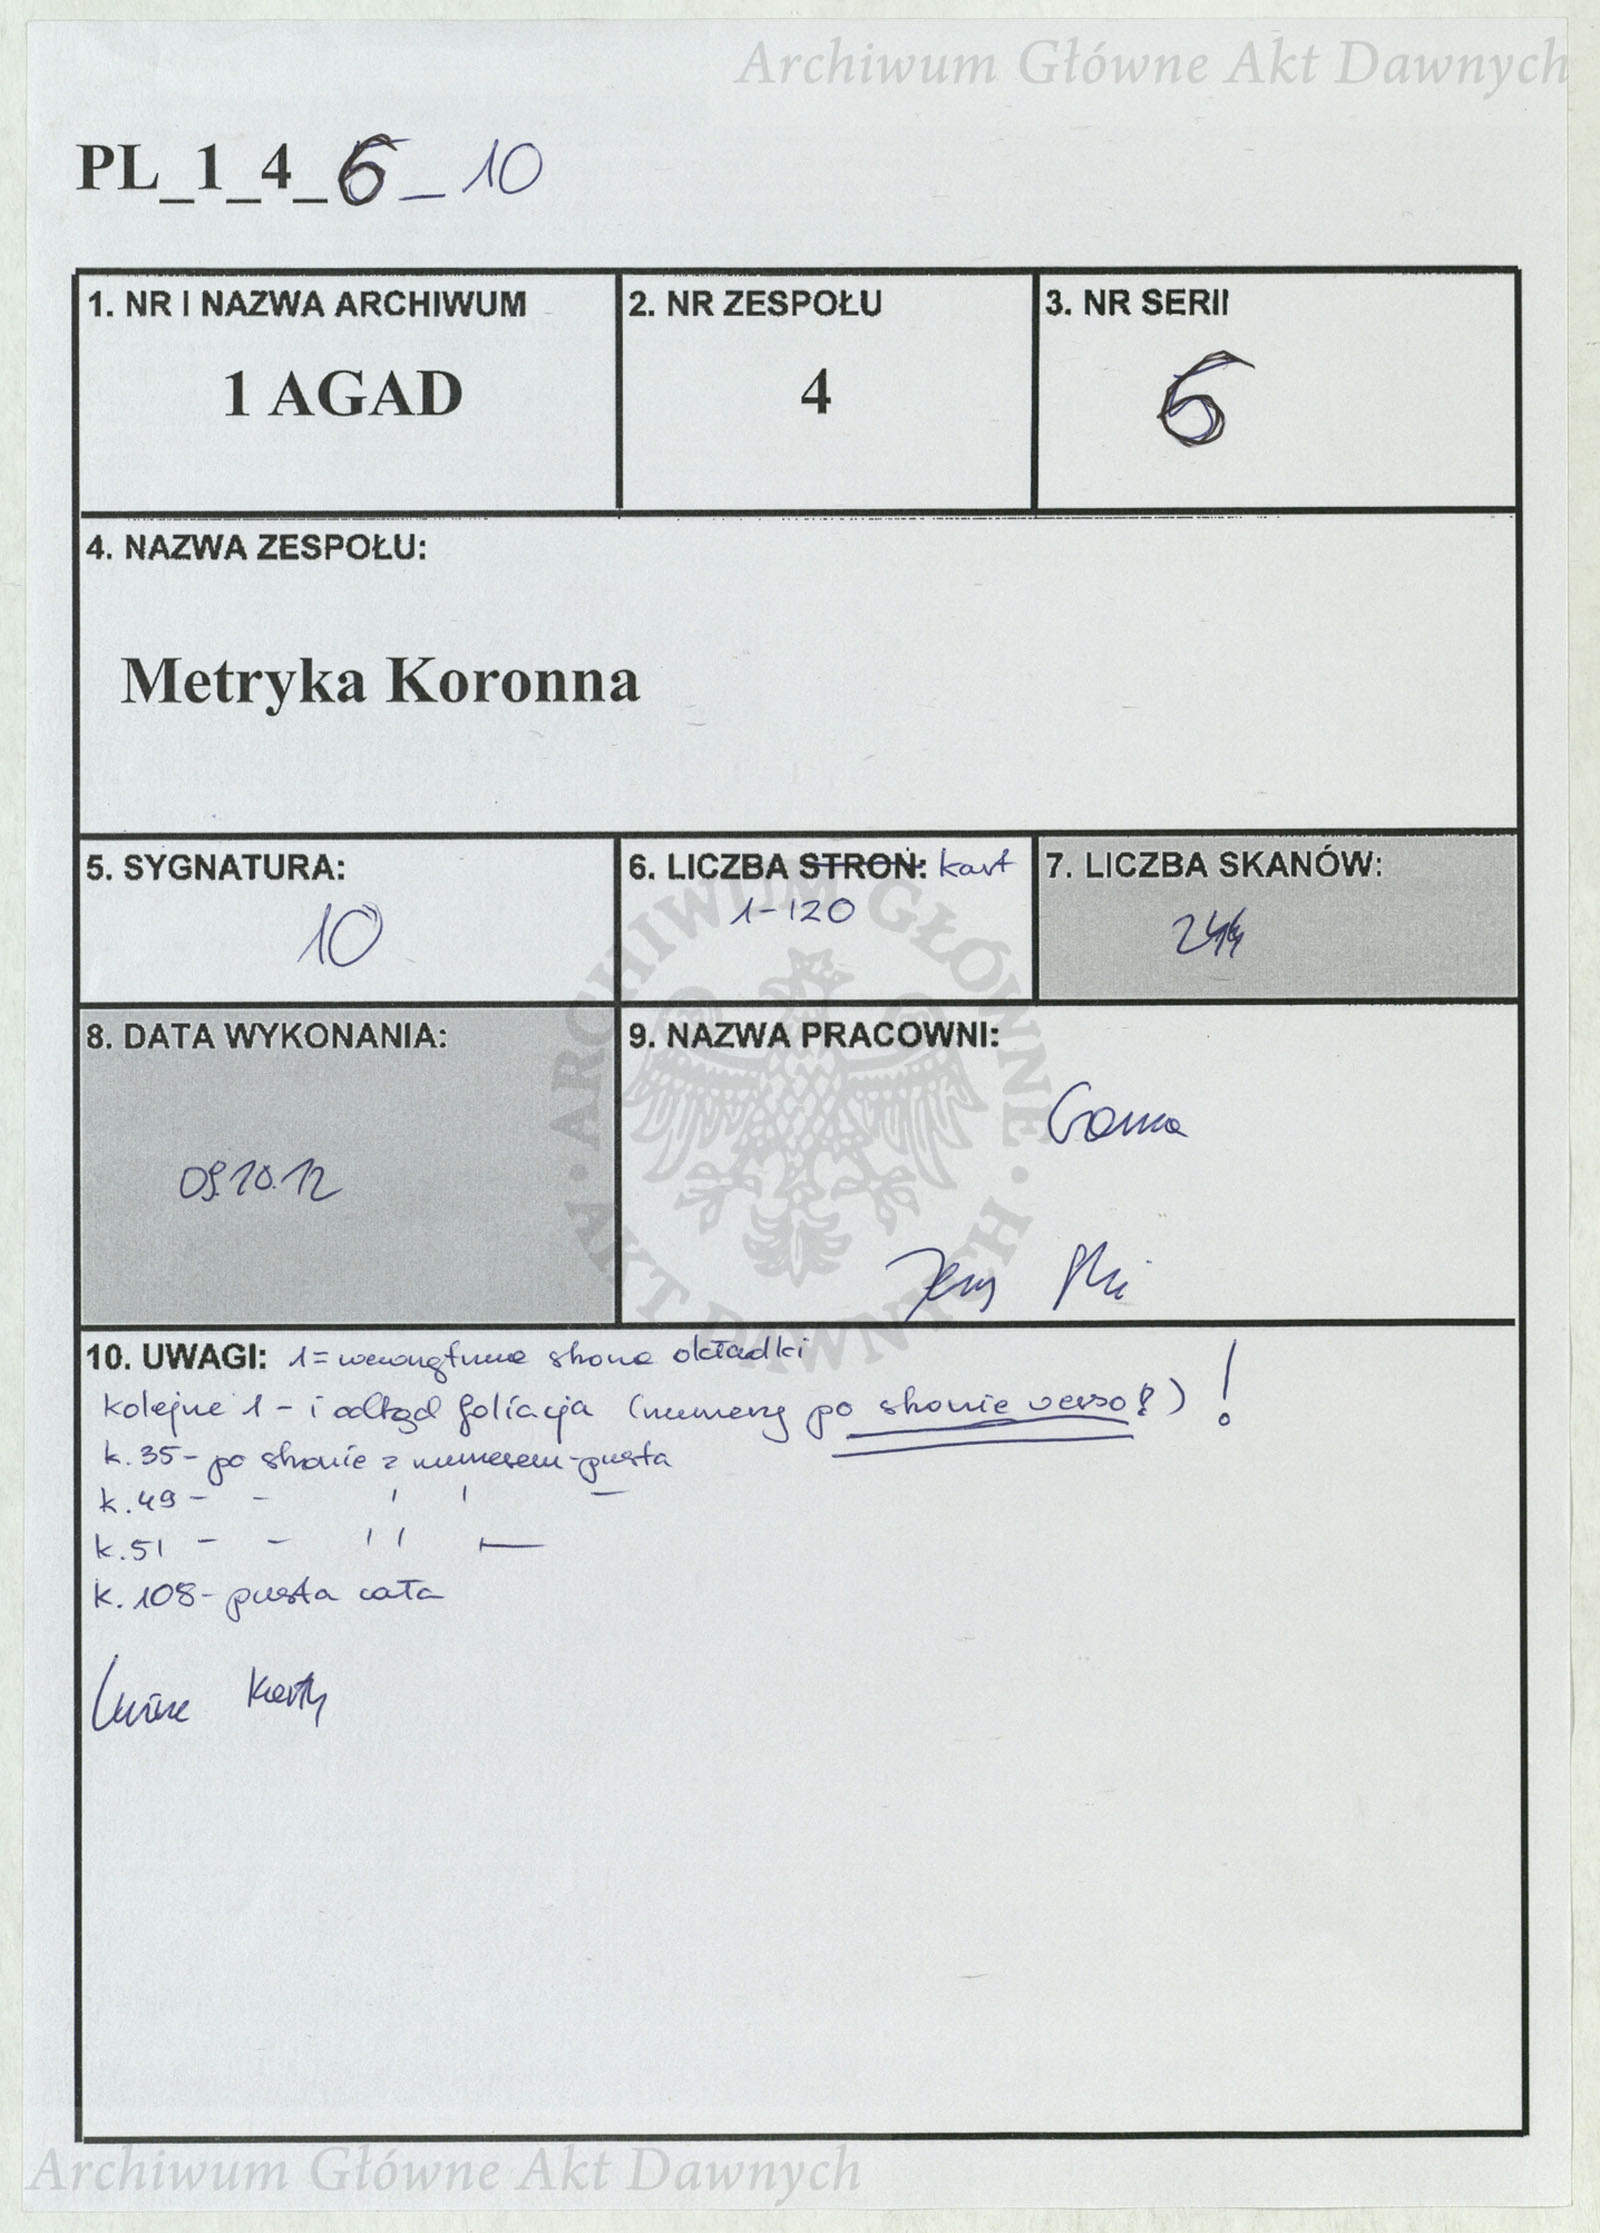 Archiwum Główne Akt Dawnych
PL_1_4_6_10
1. NR I NAZWA ARCHIWUM
1 AGAD
2. NR ZESPOŁU
4
3. NR SERII
6
4. NAZWA ZESPOŁU:
Metryka Koronna
5. SYGNATURA:
10
6. LICZBA STRON: kart
1-120
7. LICZBA SKANÓW:
244
8. DATA WYKONANIA:
09.10.12
9. NAZWA PRACOWNI:
10. UWAGI: 1 = wewnętrzna strona okładki
kolejne 1 - i odtąd foliacja (numery po stronie verso!) !
k. 35 - po stronie z numerem - pusta
k. 49 - - ' ' -
k. 51 - - ' ' -
k. 108 - pusta cała
karty
ARCHIWUM GŁÓWNE · AKT DAWNYCH ·
Archiwum Główne Akt Dawnych